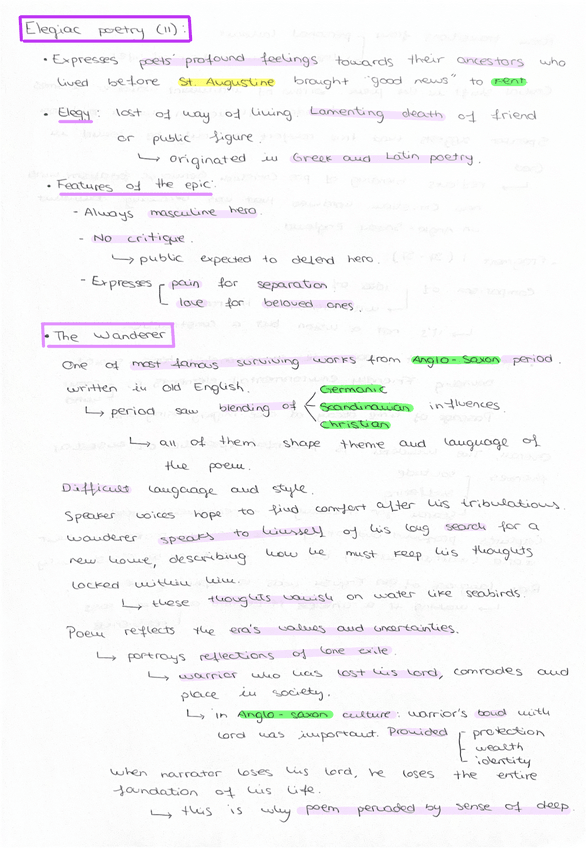 Elegiac poetry (11):
• Expresses poets' profound feelings towards their ancestors who
lived before St. Augustine brought "good news" to Kent
• Elegy: lost of way of living Lamenting death of friend
or public figure.
↳ originated in Greek and Latin poetry.
• Features of the epic:
- Always masculine hero.
- No critique.
↳ public expected to defend hero.
- Expresses pain for separation
love for beloved ones.
• The Wanderer
One of most famous surviving works from Anglo-Saxon period.
written in Old English.
↳ period saw blending of Germanic Scandinavian Christian influences.
↳ all of them shape theme and language of
the poem.
Difficult language and style.
Speaker voices hope to find comfort after his tribulations.
wanderer speaks to himself of his long search for a
new home, describing how he must keep his thoughts
locked within him.
↳ these thoughts vanish on water like seabirds.
Poem reflects the era's values and uncertainties.
↳ portrays reflections of lone exile.
↳ warrior who has lost his lord, comrades and
place in society.
↳ in Anglo-saxon culture: warrior's bond with
lord was important. Provided protection
wealth
identity
when narrator loses his lord, he loses the entire
foundation of his life.
↳ this is why poem pervaded by sense of deep